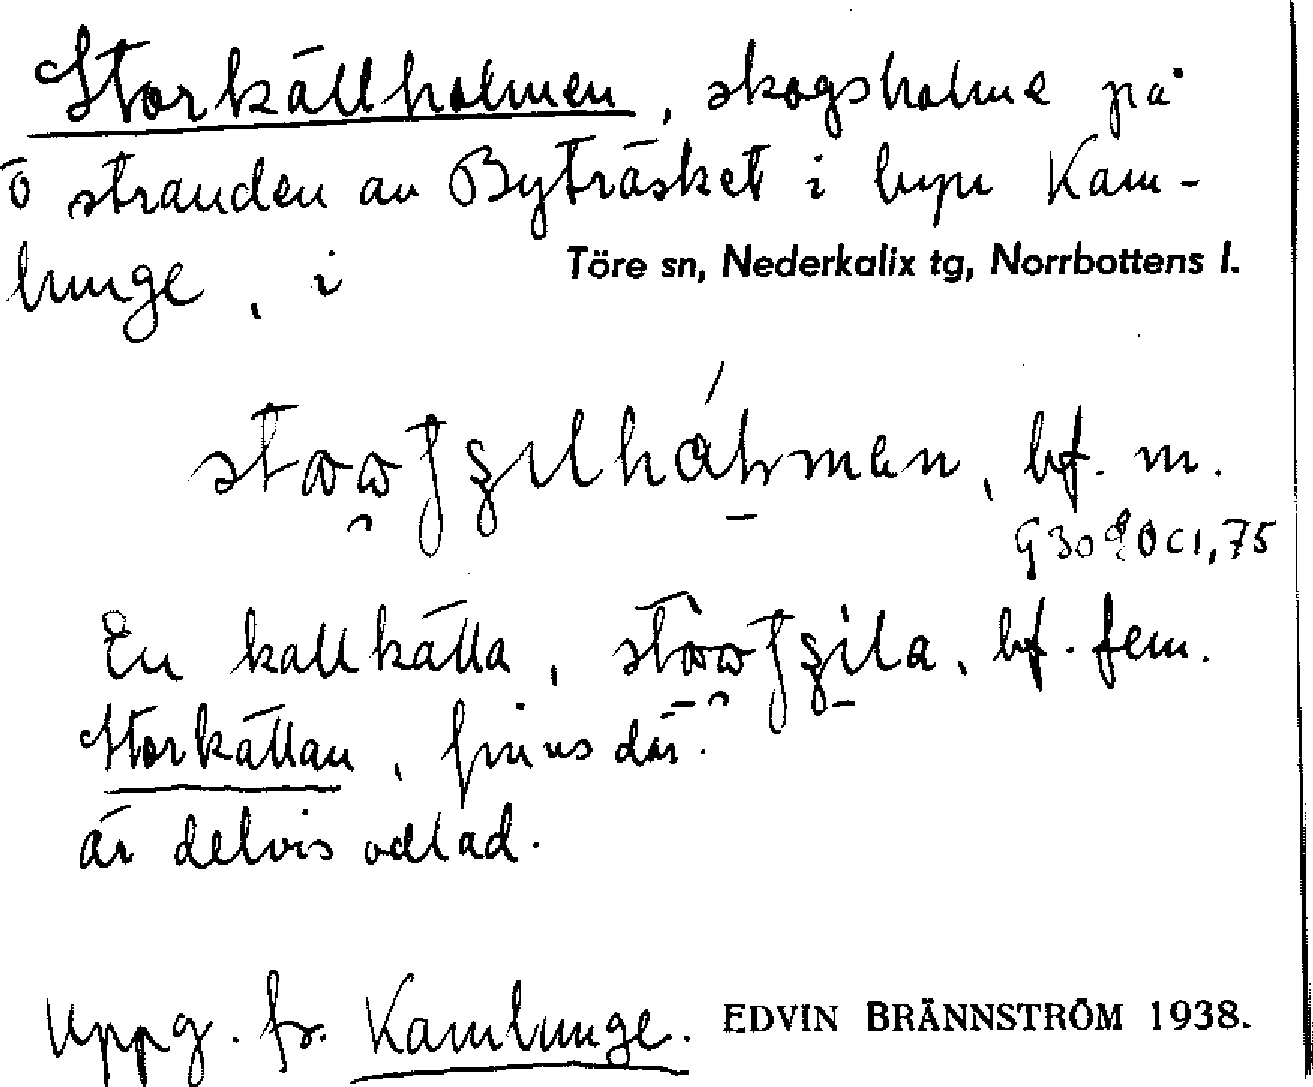 Storkällholmen, skogsholme på
ö stranden av Byträsket i byn Kam-
lunge, i Töre sn, Nederkalix tg, Norrbottens l.
bf. m.
En kallkälla, bf. fem.
Storkällan, finns där.
är delvis odlad.
Uppg. fr. Kamlunge. EDVIN BRÄNNSTRÖM 1938.